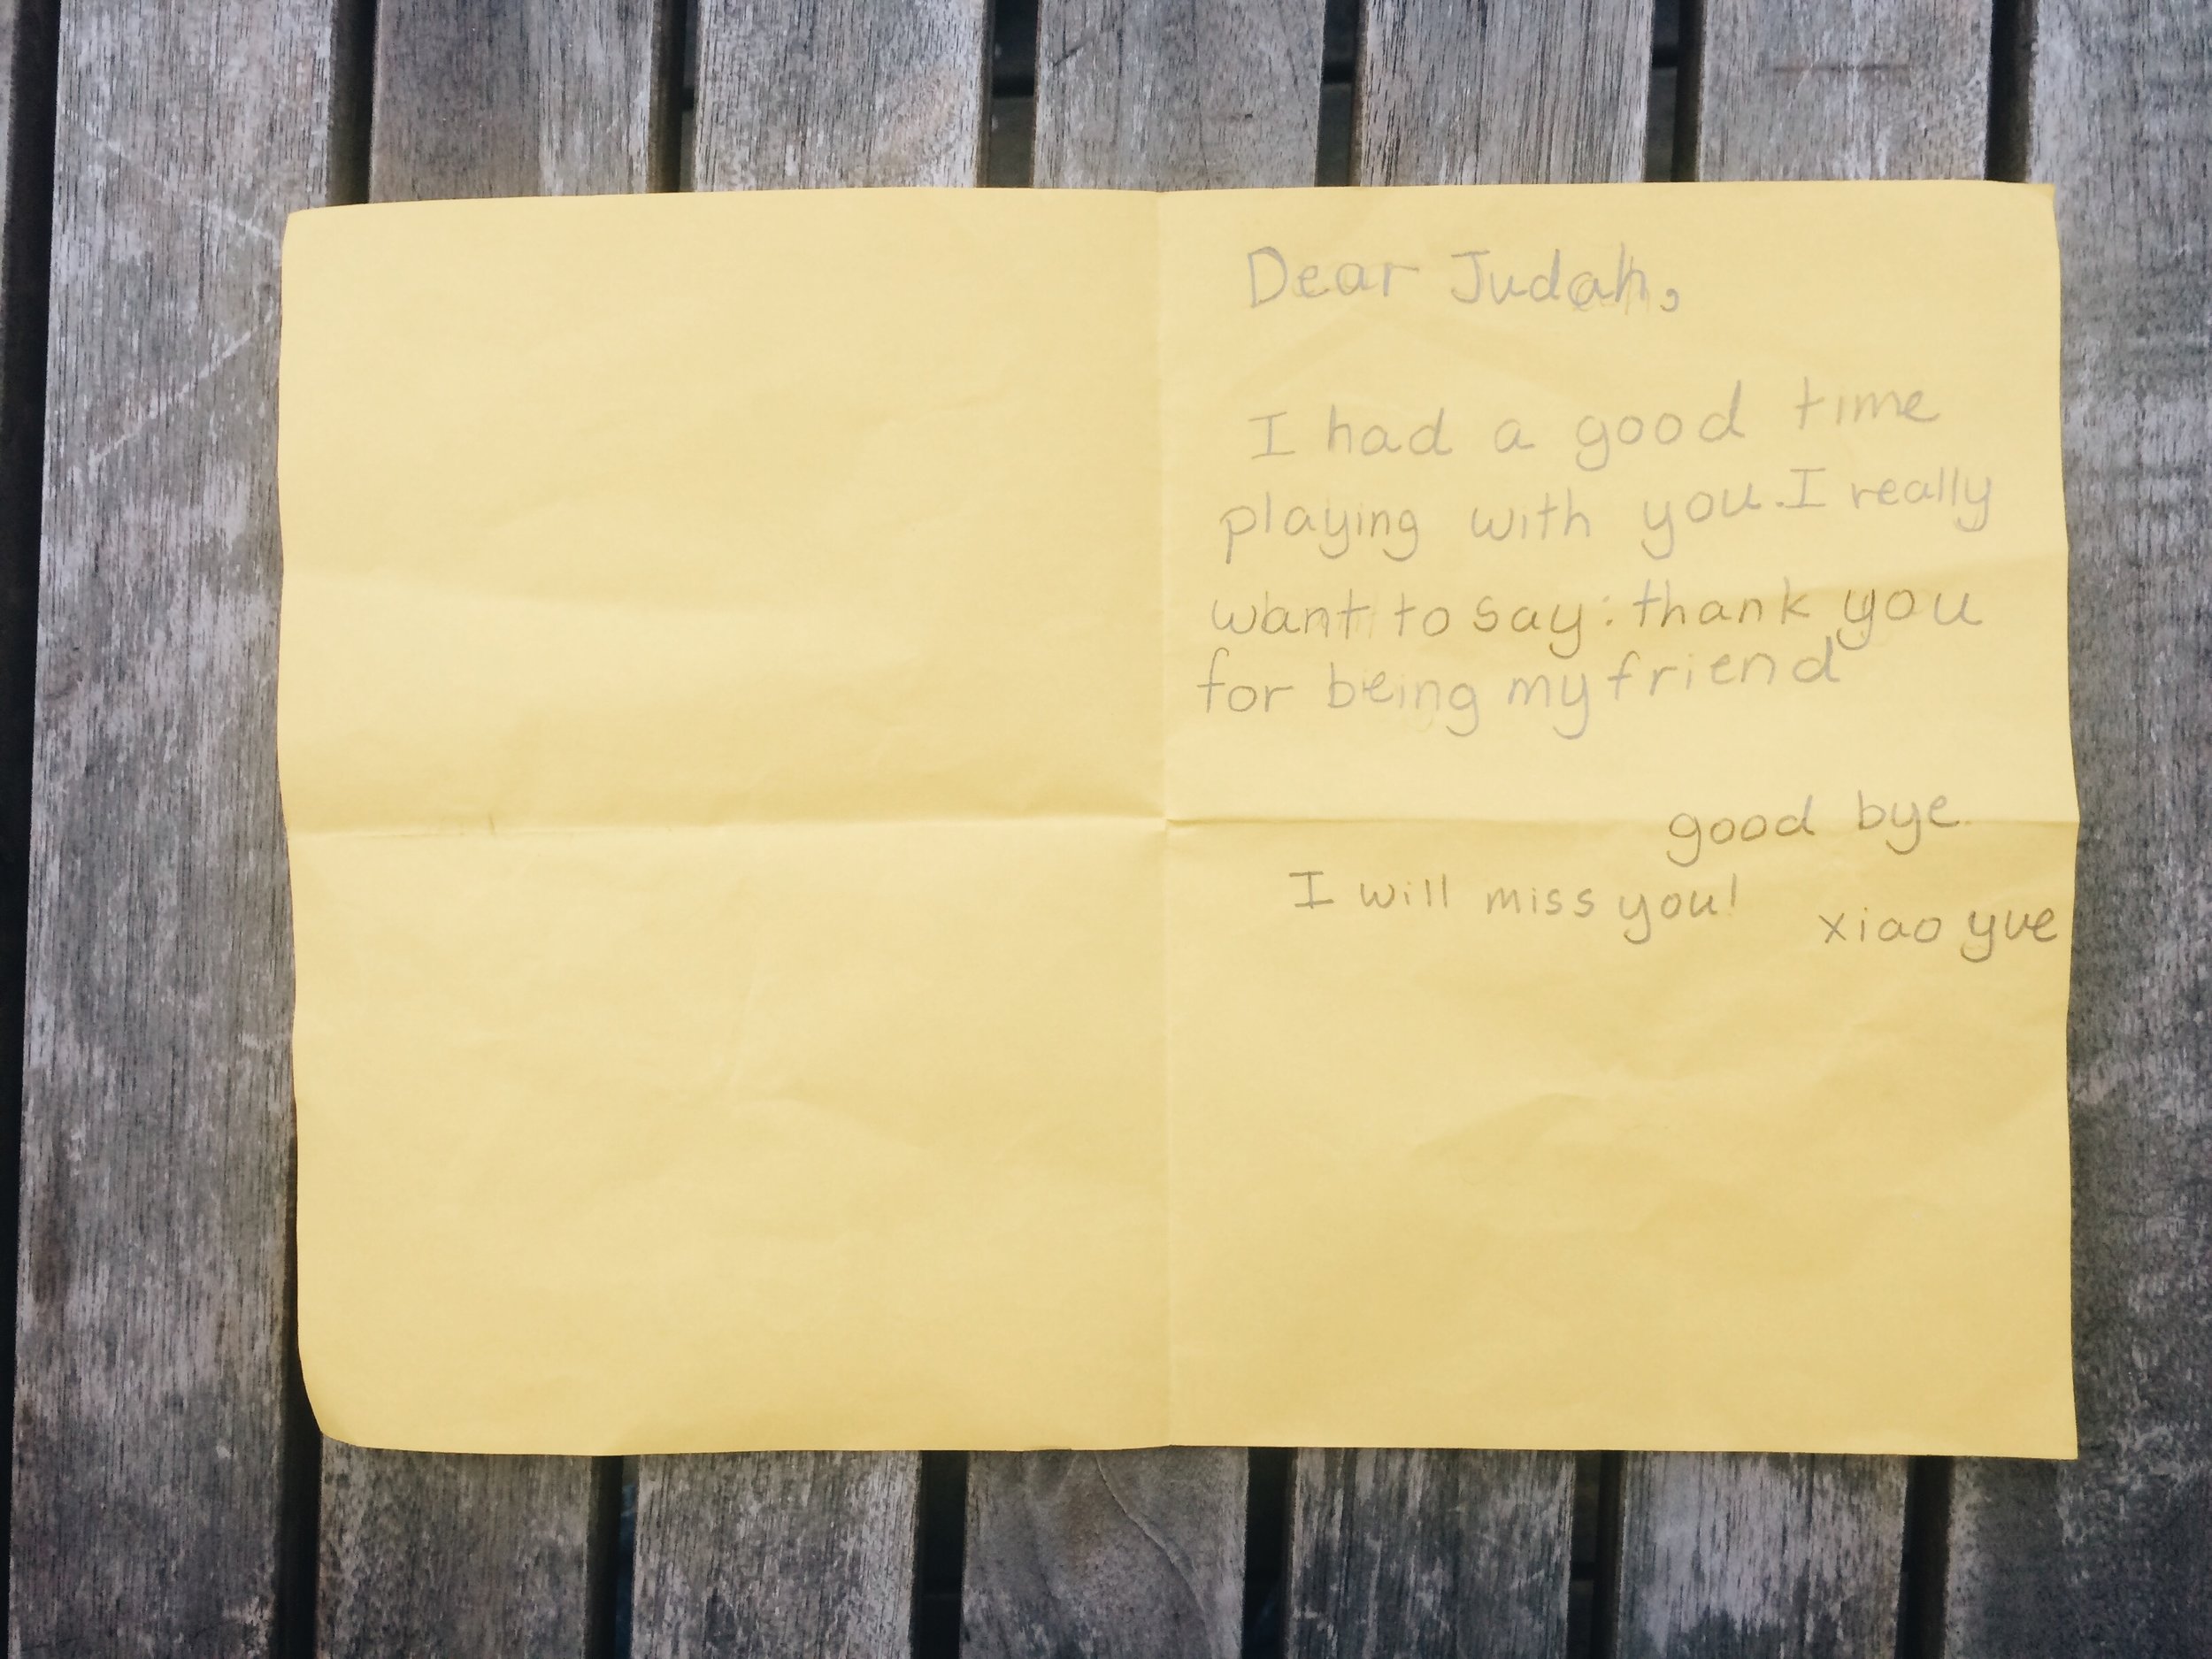 Dear Judah,
I had a good time
playing with you. I really
want to say: thank you
for being my friend
good bye.
I will miss you!
xiao yue